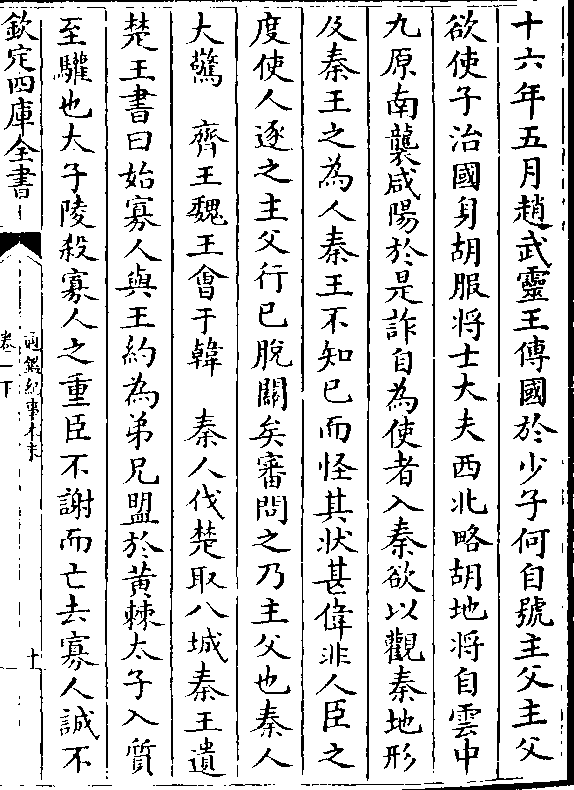 十六年五月趙武靈王傳國於少子何自號主父主父
欲使子治國身胡服將士大夫西北略胡地將自雲中
九原南襲咸陽於是詐自為使者入秦欲以觀秦地形
及秦王之為人秦王不知已而怪其狀甚偉非人臣之
度使人逐之主父行已脫關矣審問之乃主父也秦人
大驚　齊王魏王會于韓　秦人伐楚取八城秦王遺
楚王書曰始寡人與王約為弟兄盟於黃棘太子入質
至驩也太子陵殺寡人之重臣不謝而亡去寡人誠不
欽定四庫全書
通鑑紀事本末
卷一下
十